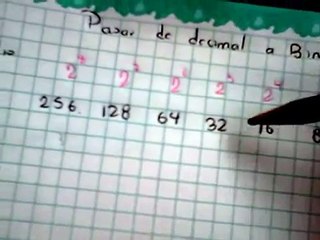 Pasar de decimal a Bin
2⁸ 2⁷ 2⁶ 2⁵ 2⁴
256 128 64 32 16 8